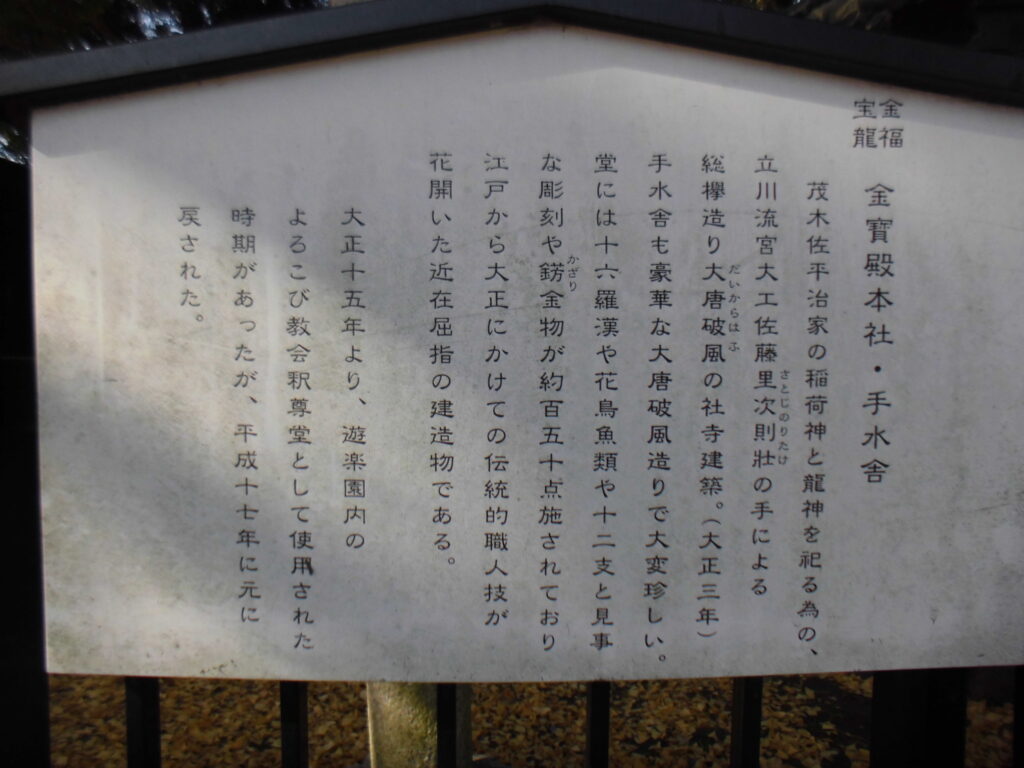 金福
宝龍
金寶殿本社・手水舎
茂木佐平治家の稲荷神と龍神を祀る為の、
立川流宮大工佐藤里次則壯の手による
さとじのりたけ
総欅造り大唐破風の社寺建築。(大正三年)
だいからはふ
手水舎も豪華な大唐破風造りで大変珍しい。
堂には十六羅漢や花鳥魚類や十二支と見事
な彫刻や錺金物が約百五十点施されており
かざり
江戸から大正にかけての伝統的職人技が
花開いた近在屈指の建造物である。
大正十五年より、遊楽園内の
よろこび教会釈尊堂として使用された
時期があったが、平成十七年に元に
戻された。